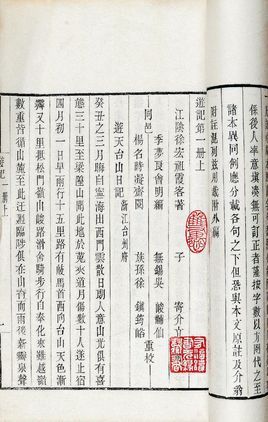 係後人率意填湊無可訂正者謹按字數以方圍代之至
諸本異同例應分載各句之下但恐與本文原註及介翁
附註混列茲用綴附外編
遊記第一冊上
江陰徐宏祖霞客著 子 寄介立
季夢良會明編 無錫吳
同邑
楊名時凝齋閱 族孫徐鎮筠峪 重校
遊天台山日記 浙江台州府
癸丑之三月晦自寧海出西門雲散日朗人意山光俱有喜
態三十里至梁隍山聞此地於菟夾道月傷數十人遂止宿
四月初一日早雨行十五里路有岐馬首西向台山天色漸
霽又十里抵松門嶺山峻路滑舍騎步行自奉化來雖越嶺
數重皆循山麓至此迂迴臨陟俱在山脊而雨後新霽泉聲
遊記一冊上